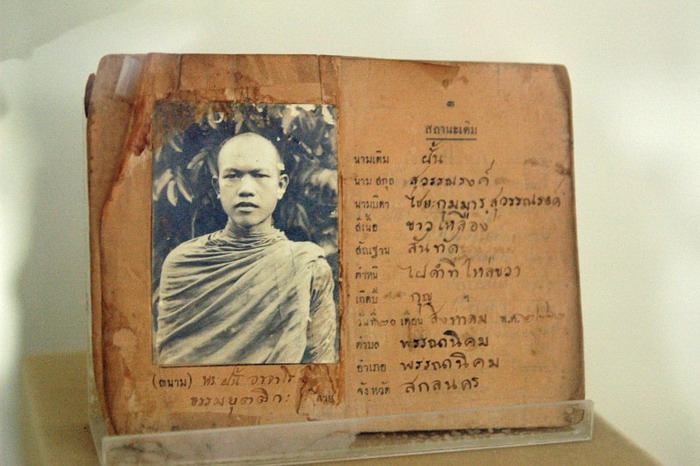 ๓
สถานะเดิม
นามเดิม ฝั้น
นามสกุล สุวรรณรงค์
นามบิดา ไชยะกุมมาร สุวรรณรงค์
สีเนื้อ ขาวเหลือง
สัณฐาน สันทัด
ตำหนิ ไฝดำที่ไหล่ขวา
เกิดปี กุญ
วันที่ ๒๐ เดือน สิงหาคม พ.ศ.
ตำบล พรรณานิคม
อำเภอ พรรณานิคม
จังหวัด สกลนคร
(ฉายา) พระ ฝั้น อาจาโร
ธรรมยุตติกะ